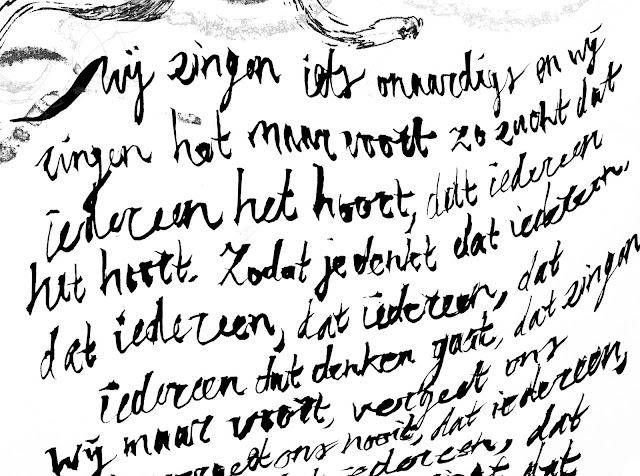 Wij zingen iets onaardigs en wij
zingen het maar voort zo zucht dat
iedereen het hoort, dat iedereen
het hoort. Zodat je denkt dat iedereen,
dat iedereen, dat iedereen, dat
iedereen dat denken gaat, dat zingen
wij maar voort, vergeet ons
vergeet ons nooit, dat iedereen,
iedereen, dat
dat